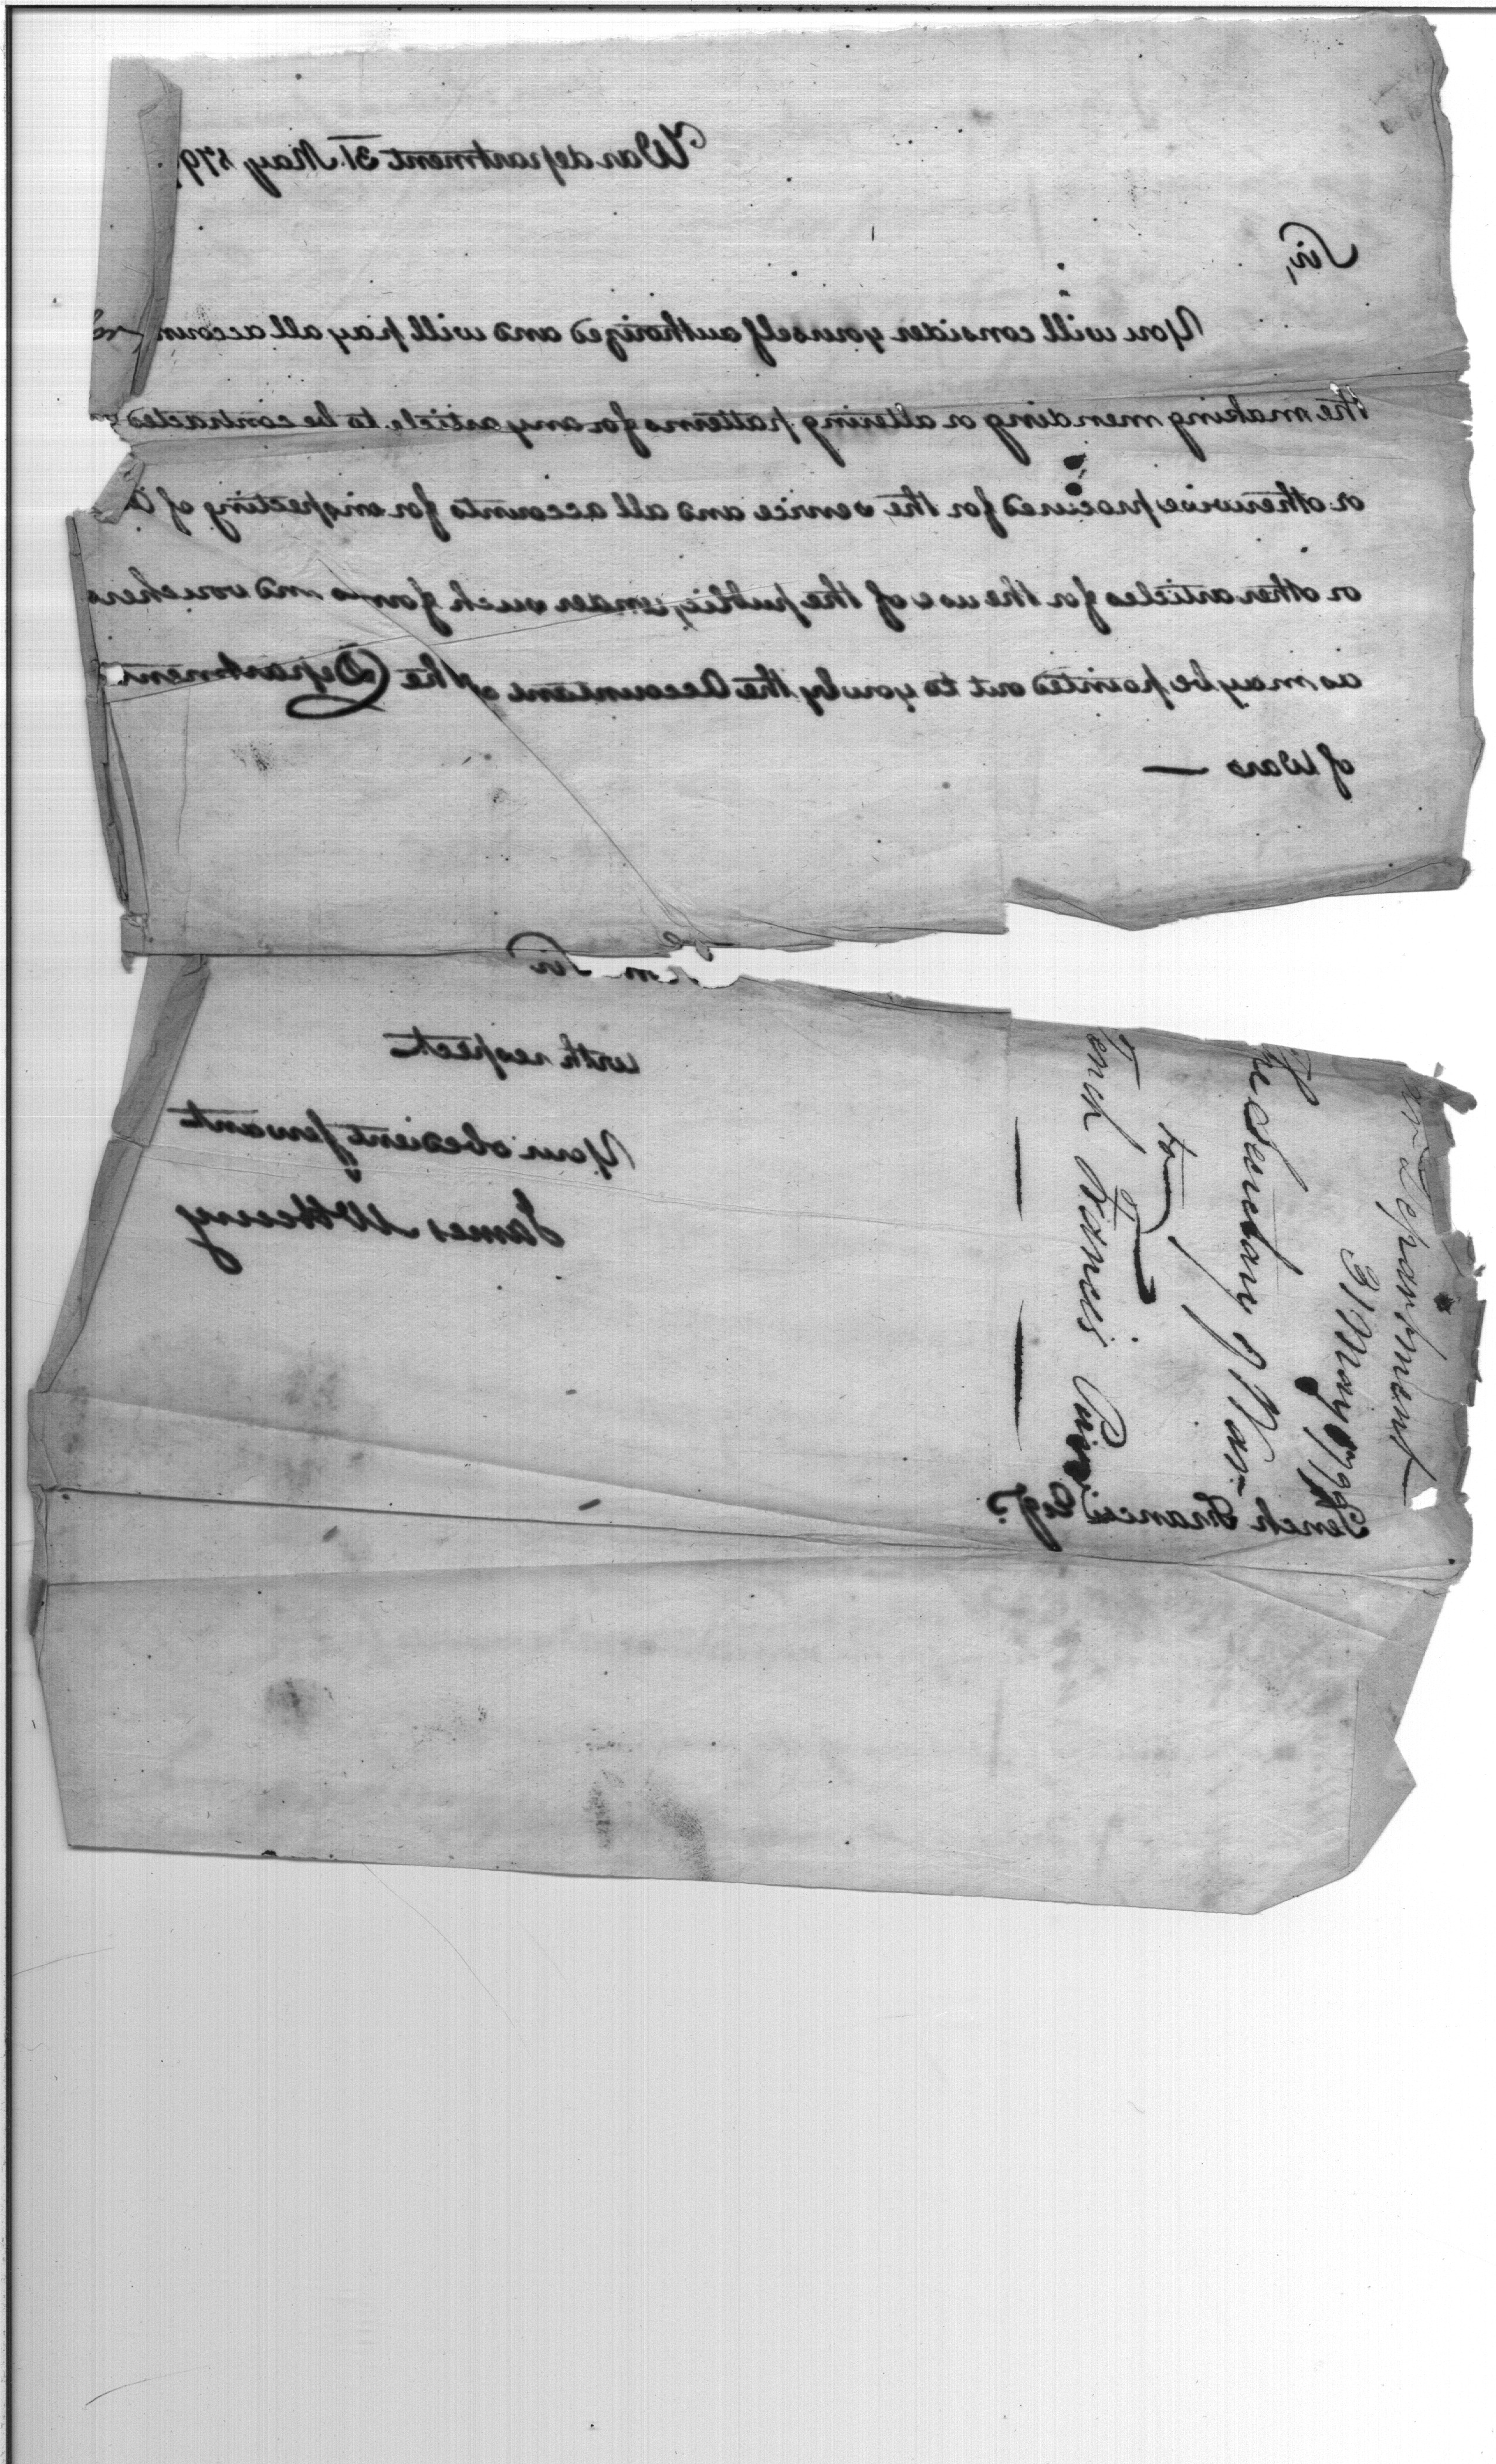 War department 31 May 179
Sir,
You will consider yourself authorized and will pay all accoun
the making mending or altering patterns for any article to be contracted
or otherwise procured for the service and all accounts for inspecting of
or other articles for the use of the public, under such forms and vouchers
as may be pointed out to you by the Accountant of the Department
of War
am Sir
with respect
Your obedient servant
James McHenry
Tench Francis Esqr.
Department
31 May 1798
The Secretary of War
to
Tench Francis